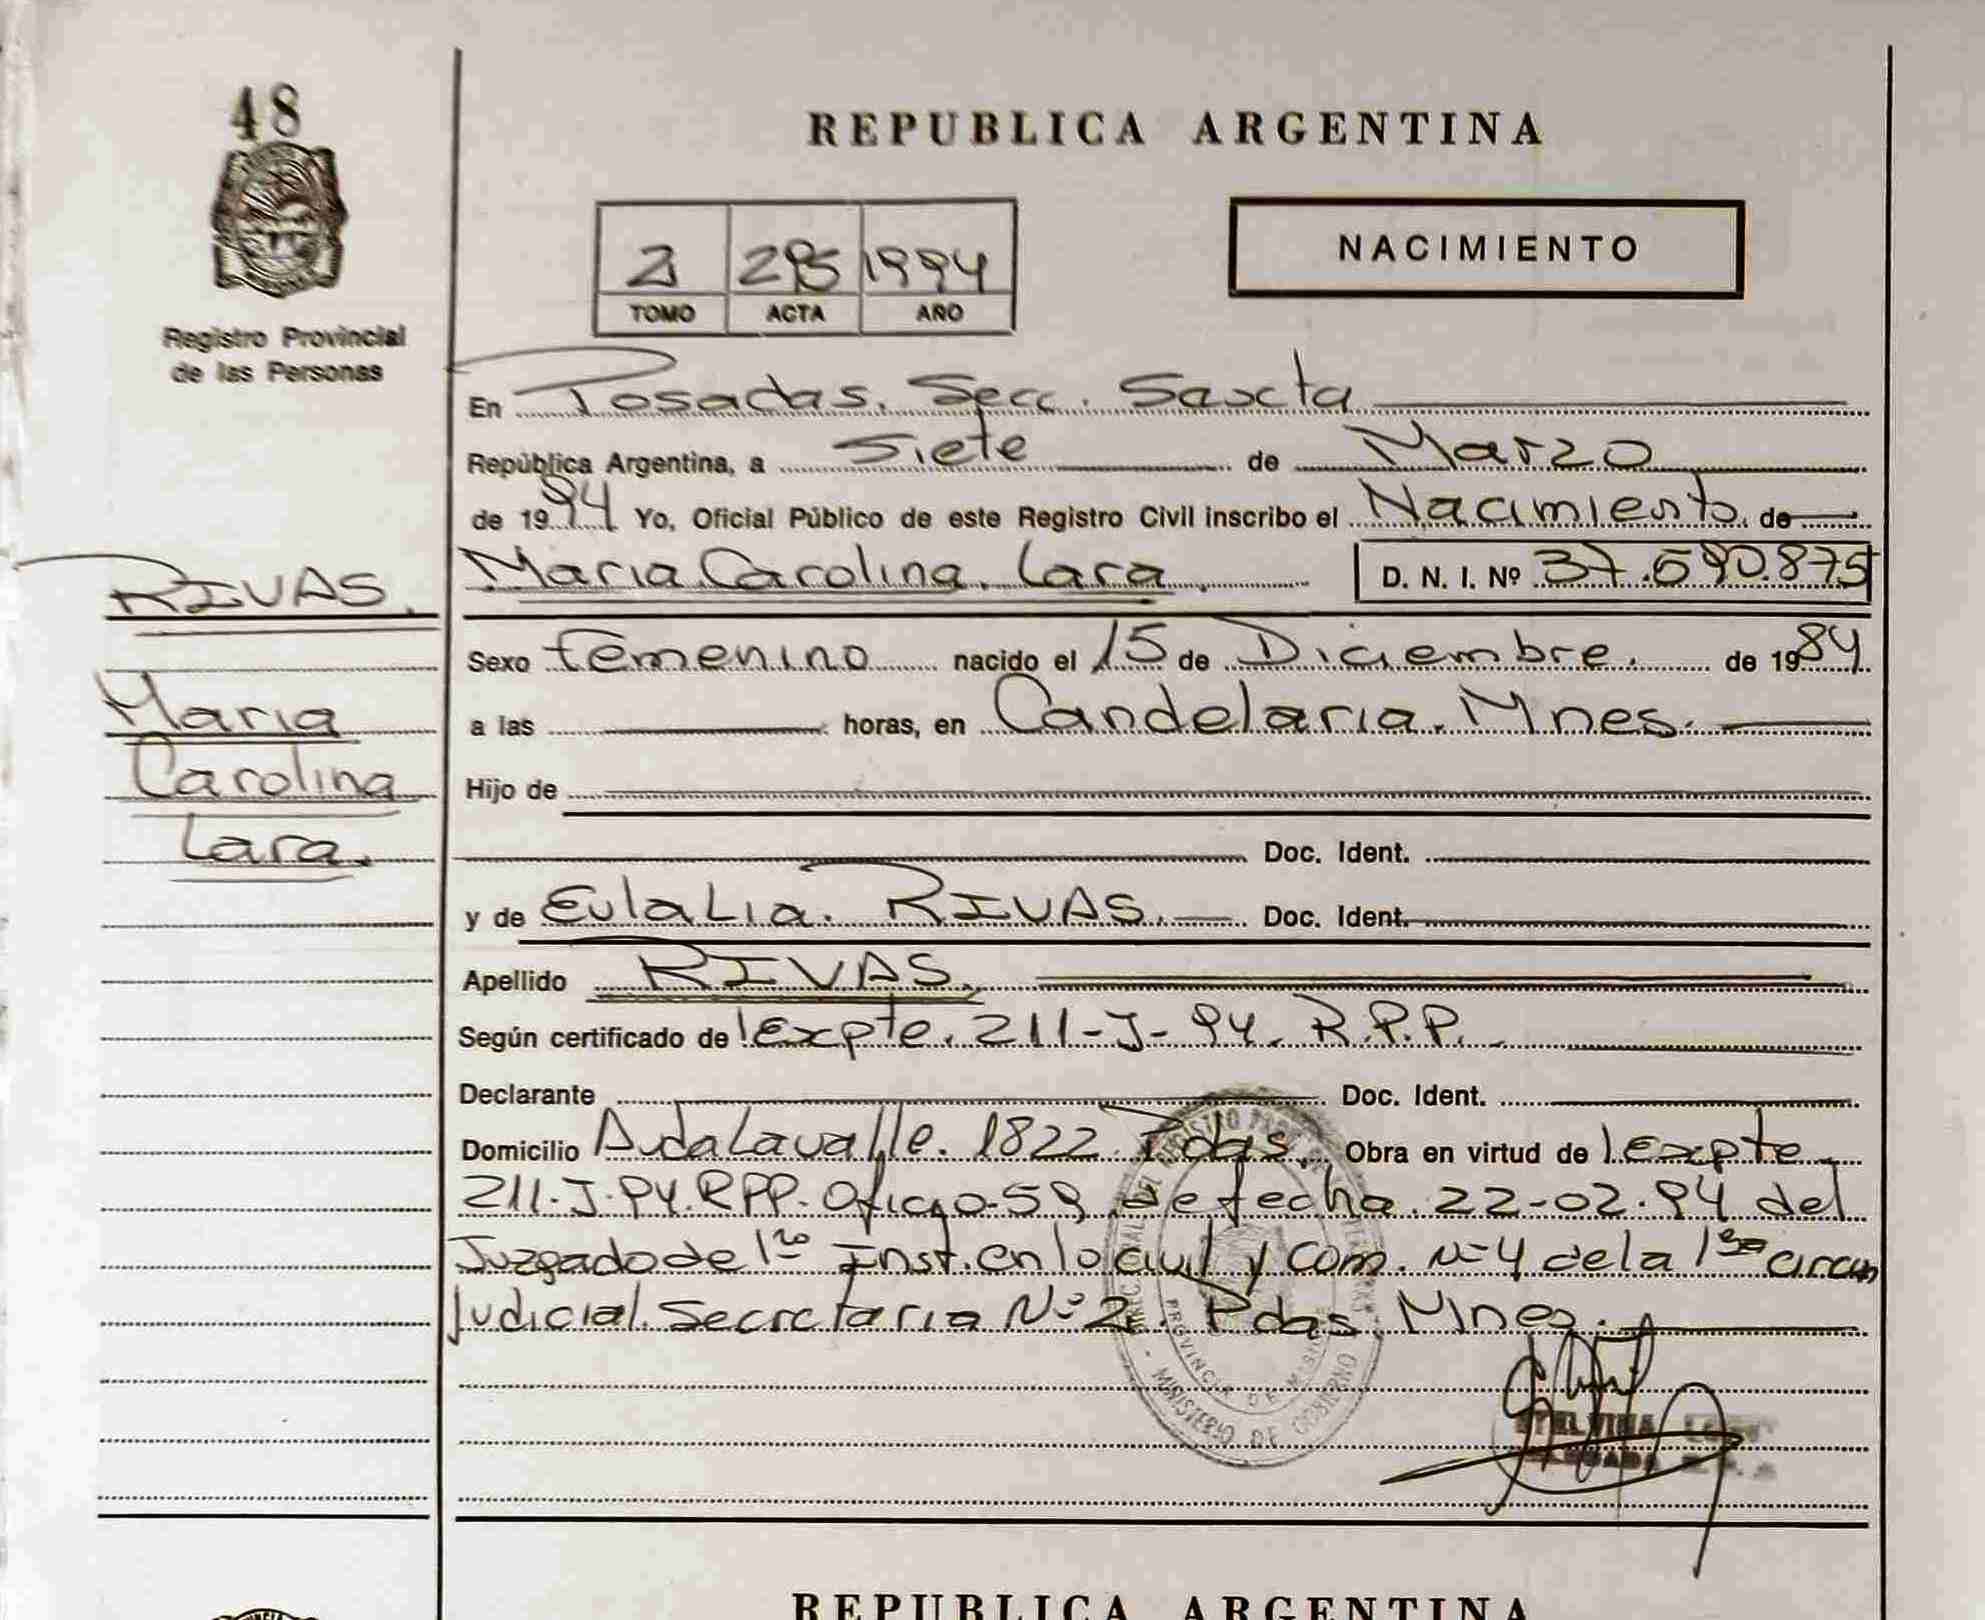 48
Registro Provincial
de las Personas
REPUBLICA ARGENTINA
NACIMIENTO
2 295 1994
TOMO ACTA AÑO
En Posadas. Secc. Sexta
República Argentina, a Siete de Marzo
de 1994 Yo, Oficial Público de este Registro Civil inscribo el Nacimiento de
Maria Carolina Lara D. N. I. Nº 37.590.875
RIVAS.
Maria
Carolina
Lara.
Sexo femenino nacido el 15 de Diciembre. de 1984
a las horas, en Candelaria. Mnes.
Hijo de
Doc. Ident.
y de Eulalia. RIVAS. Doc. Ident.
Apellido RIVAS.
Según certificado de Expte. 211-J-94. R.P.P.
Declarante Doc. Ident.
Domicilio Avda Lavalle. 1822 Pdas. Obra en virtud de Expte
211-J-94. RPP. Oficio-59 de fecha 22-02-94 del
Juzgado de 1ra Inst. en lo civil y Com. Nº 4 de la 1ra circun
Judicial. Secretaria Nº 2. Pdas. Mnes.
MINISTERIO DE GOBIERNO
PROVINCIA DE MISIONES
REPUBLICA ARGENTINA